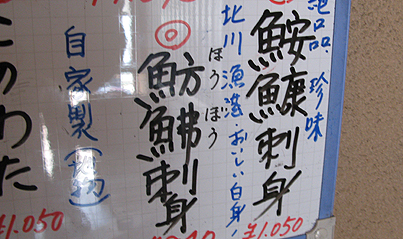 絶品 珍味
鮟鱇刺身
¥1.050
北川漁港・おいしい白身!
◎魴鮄刺身
ほうぼう
自家製(物)
このわた
¥1.050